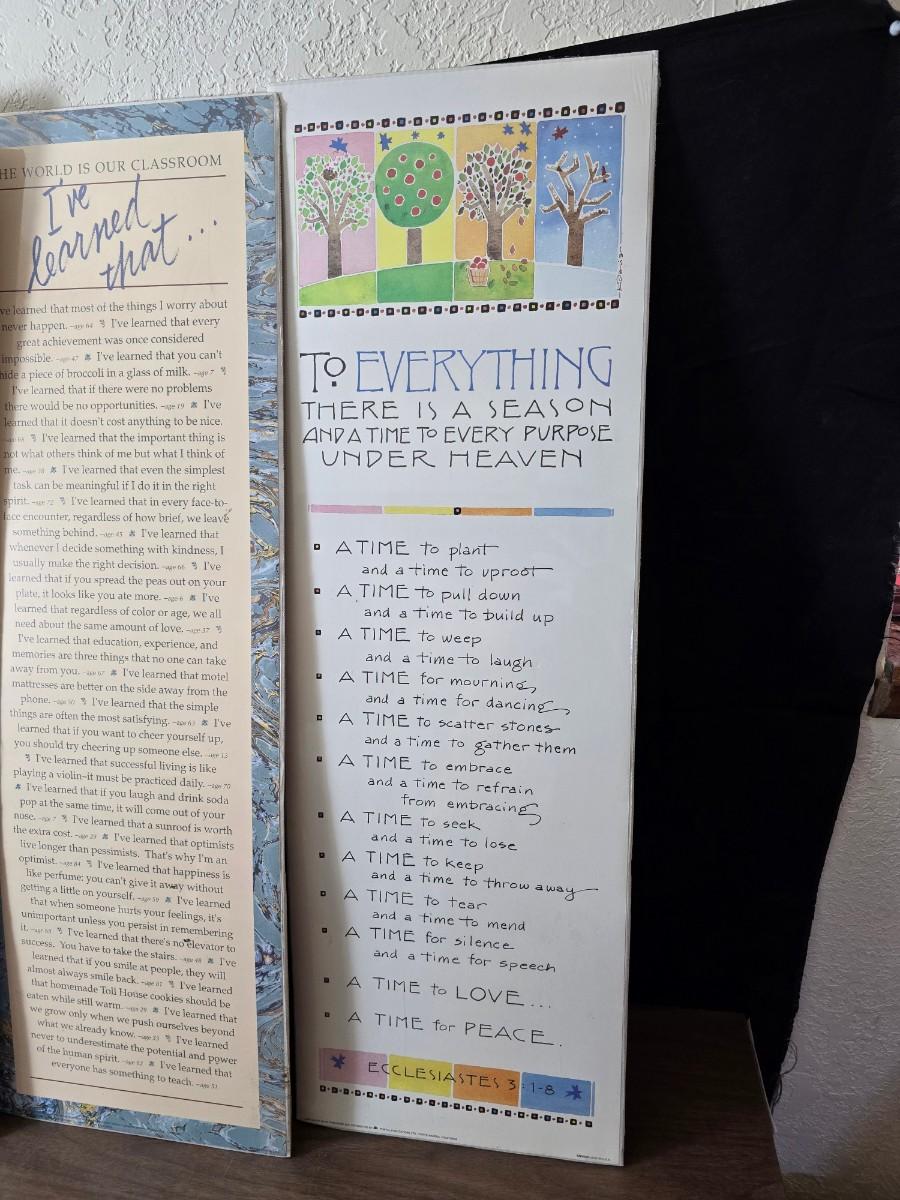 HE WORLD IS OUR CLASSROOM
I've
learned
that...
ve learned that most of the things I worry about
never happen. –age 64 I've learned that every
great achievement was once considered
impossible. –age 47 I've learned that you can't
hide a piece of broccoli in a glass of milk. –age 7
I've learned that if there were no problems
there would be no opportunities. –age 19 I've
learned that it doesn't cost anything to be nice.
I've learned that the important thing is
not what others think of me but what I think of
me. I've learned that even the simplest
task can be meaningful if I do it in the right
spirit. –age 72 I've learned that in every face-to-
face encounter, regardless of how brief, we leave
something behind. –age 45 I've learned that
whenever I decide something with kindness, I
usually make the right decision. –age 66 I've
learned that if you spread the peas out on your
plate, it looks like you ate more. –age 6 I've
learned that regardless of color or age, we all
need about the same amount of love. –age 37
I've learned that education, experience, and
memories are three things that no one can take
away from you. –age 67 I've learned that motel
mattresses are better on the side away from the
phone. –age 50 I've learned that the simple
things are often the most satisfying. –age 63 I've
learned that if you want to cheer yourself up,
you should try cheering up someone else. –age 13
I've learned that successful living is like
playing a violin–it must be practiced daily. –age 70
I've learned that if you laugh and drink soda
pop at the same time, it will come out of your
nose. –age 7 I've learned that a sunroof is worth
the extra cost. –age 29 I've learned that optimists
live longer than pessimists. That's why I'm an
optimist. –age 84 I've learned that happiness is
like perfume: you can't give it away without
getting a little on yourself. –age 59 I've learned
that when someone hurts your feelings, it's
unimportant unless you persist in remembering
it. I've learned that there's no elevator to
success. You have to take the stairs. –age 48 I've
learned that if you smile at people, they will
almost always smile back. –age 81 I've learned
that homemade Toll House cookies should be
eaten while still warm. –age 29 I've learned that
we grow only when we push ourselves beyond
what we already know. –age 53 I've learned
never to underestimate the potential and power
of the human spirit. –age 82 I've learned that
everyone has something to teach. –age 51
TO EVERYTHING
THERE IS A SEASON
AND A TIME TO EVERY PURPOSE
UNDER HEAVEN
A TIME to plant
and a time to uproot
A TIME to pull down
and a time to build up
A TIME to weep
and a time to laugh
A TIME for mourning
and a time for dancing
A TIME to scatter stones
and a time to gather them
A TIME to embrace
and a time to refrain
from embracing
A TIME to seek
and a time to lose
A TIME to keep
and a time to throw away
A TIME to tear
and a time to mend
A TIME for silence
and a time for speech
A TIME to LOVE...
A TIME for PEACE.
ECCLESIASTES 3:1-8